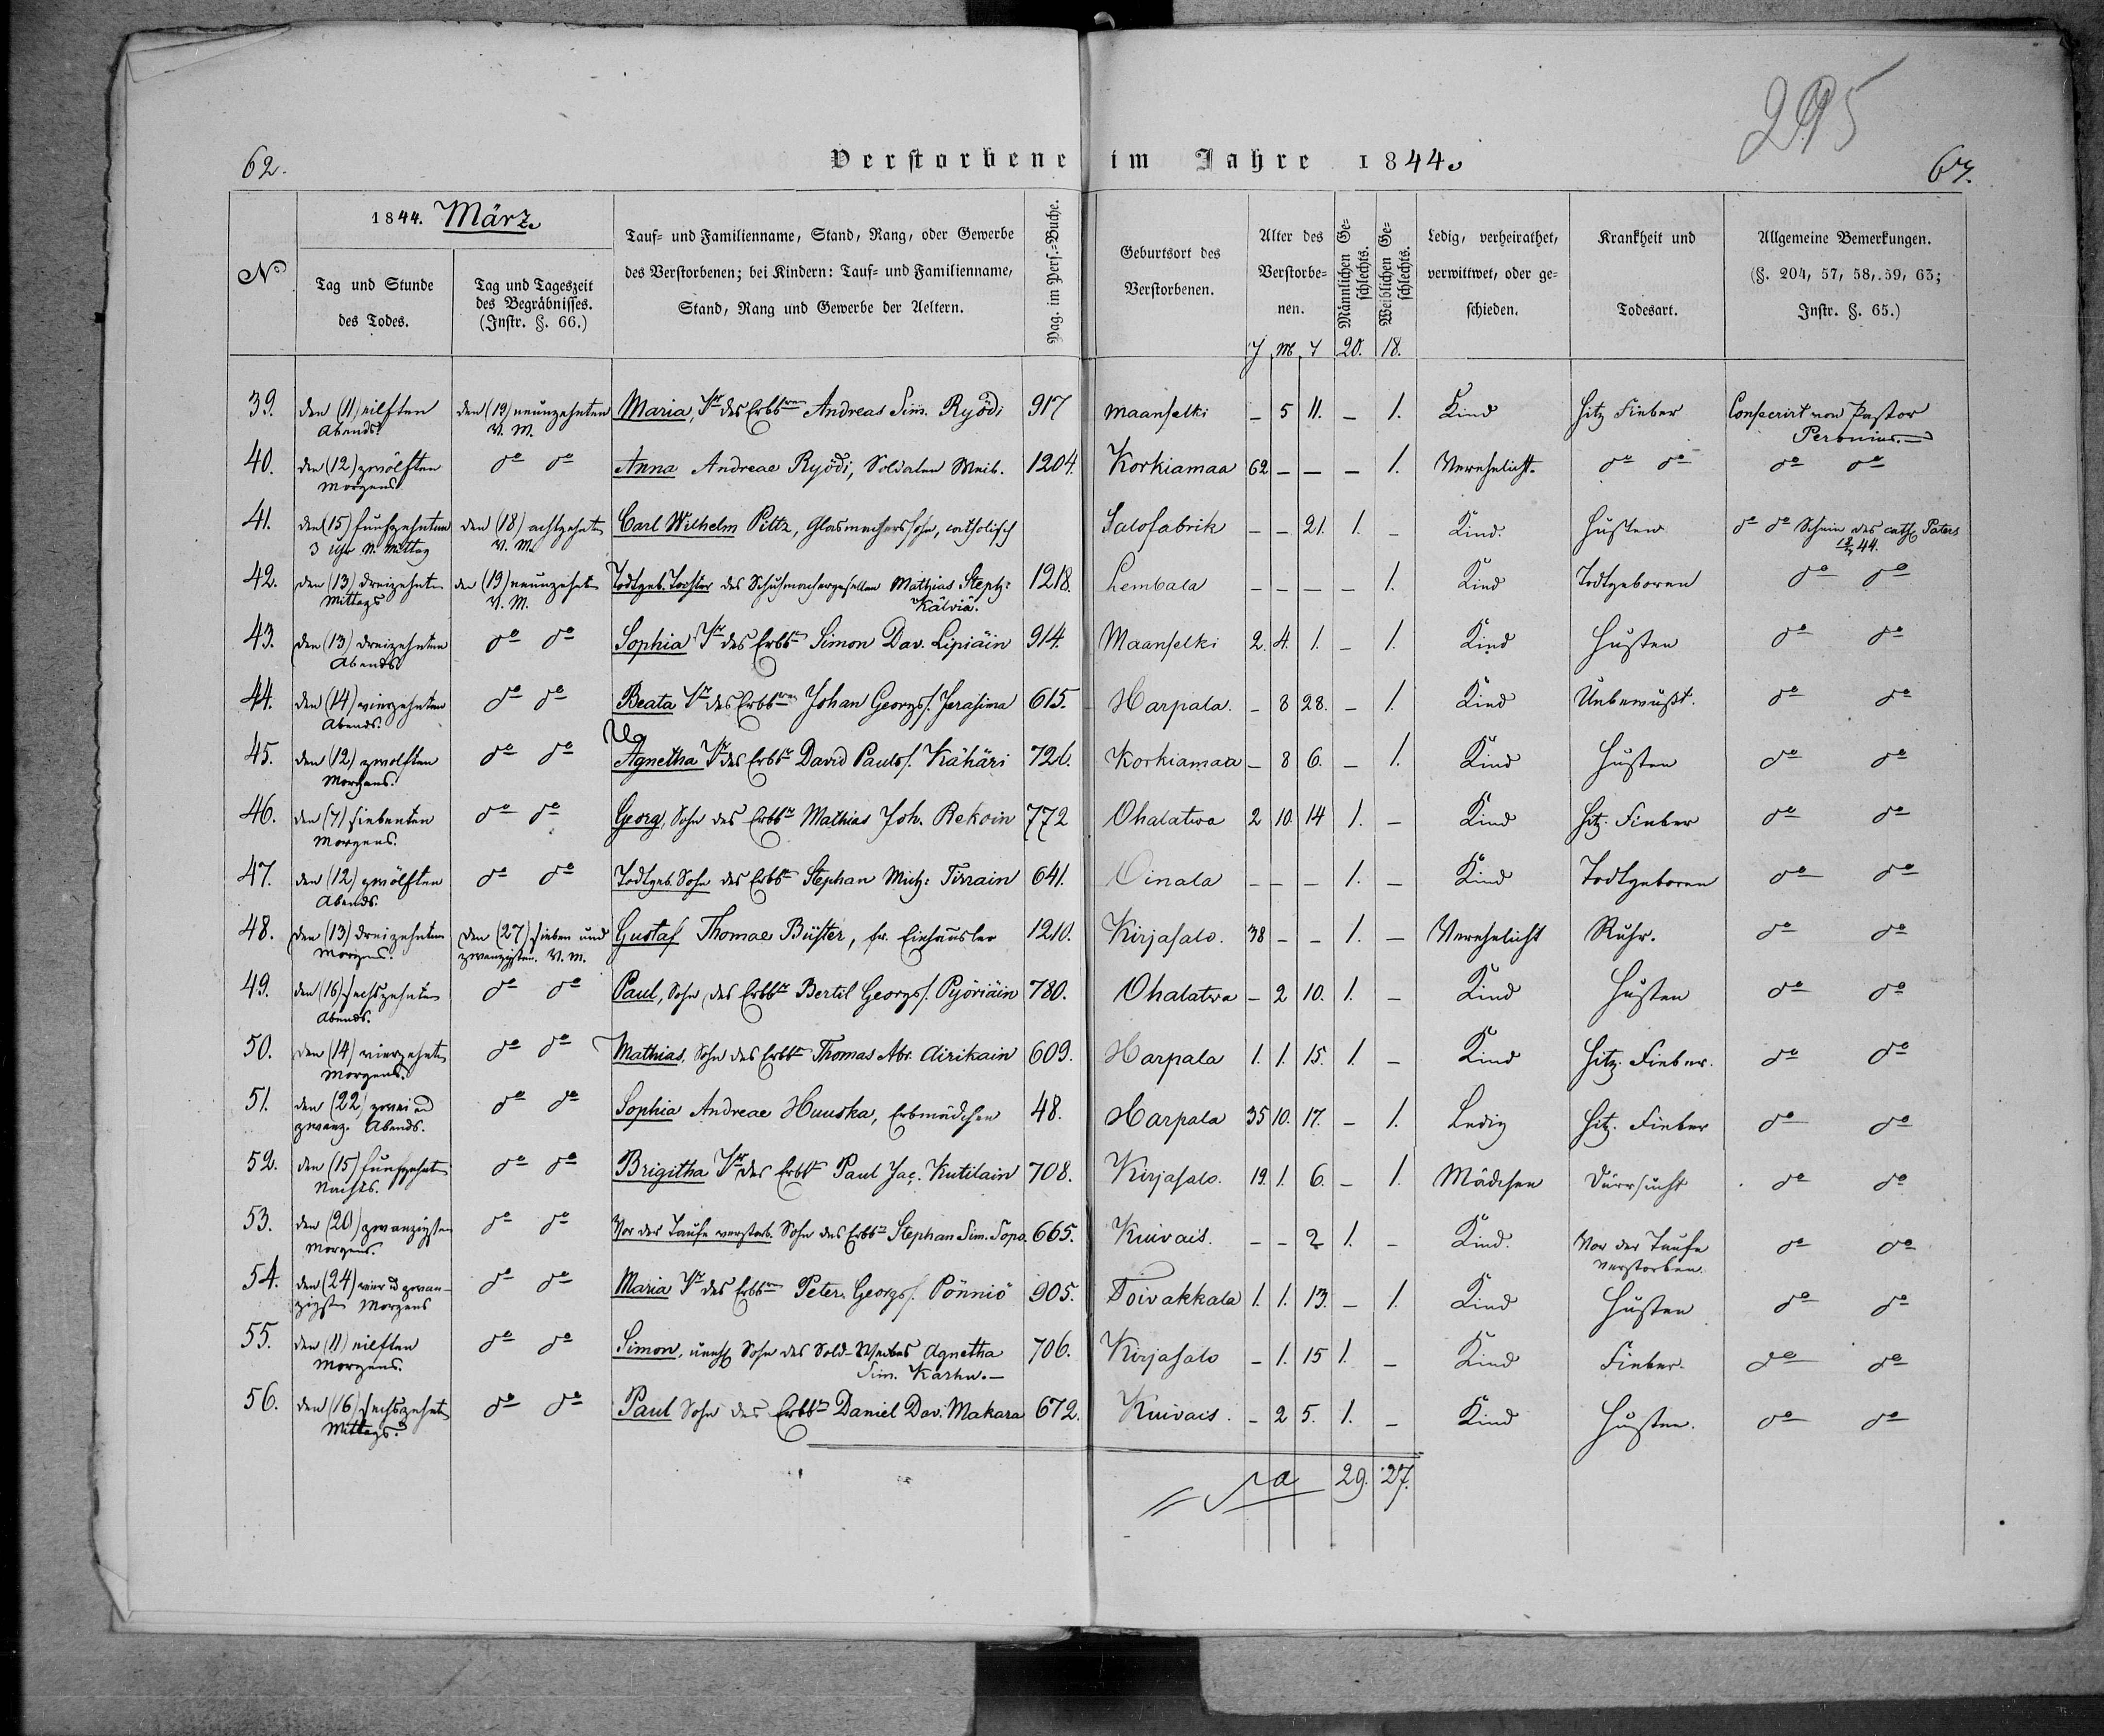 295
62.
Verstorbene im Jahre 1844.
63.
No
1844. März.
Tag und Stunde des Todes.
Tag und Tageszeit des Begräbnisses. (Instr. §. 66.)
Tauf= und Familienname, Stand, Rang, oder Gewerbe des Verstorbenen; bei Kindern: Tauf= und Familienname, Stand, Rang und Gewerbe der Aeltern.
Pag. im Pers.=Buche.
Geburtsort des Verstorbenen.
Alter des Verstorbe= nen.
Männlichen Ge= schlechts.
Weiblichen Ge= schlechts.
Ledig, verheirathet, verwittwet, oder ge= schieden.
Krankheit und Todesart.
Allgemeine Bemerkungen. (§. 204, 57, 58, 59, 63; Instr. §. 65.)
J M T 20. 18.
39. den (11) eilften Abends. den (19) neunzehnten V. M. Maria, Tr des Erbbrn Andreas Sim. Ryödi 917 Maanselki – 5 11. – 1. Kind Hitz Fieber Consecrirt von Pastor Peronius.
40. den (12) zwölften Morgens. do do Anna Andreae Ryödi, Soldaten Weib. 1204. Korkiamaa 62 – – – 1. Verehelicht. do do do do
41. den (15) funfzehnten 3 Uhr N. Mittag den (18) achtzehnt V. M. Carl Wilhelm Pittz, Glasmachers Sohn, catholisch Salofabrik – – 21. 1. – Kind. Husten do do Schein des cath. Paters 44.
42. den (13) dreizehnten Mittags den (19) neunzehnt V. M. Todtgeb. Tochter des Schuhmachergesellen Mathias Steph: Kälviä. 1218. Lembala – – – – 1. Kind Todtgeboren do do
43. den (13) dreizehnten Abends do do Sophia Tr des Erbbr Simon Dav. Lipiäin 914. Maanselki 2. 4. 1. – 1. Kind Husten do do
44. den (14) vierzehnten Abends. do do Beata Tr des Erbbrn Johan Georgs/. Jerasima 615. Harpala. – 8 28. – 1. Kind Unbewußt. do do
45. den (12) zwolften Morgens. do do Agnetha Tr des Erbbr David Pauls/. Kähäri 726. Korkiamaa – 8 6. – 1. Kind Husten do do
46. den (7) siebenten Morgens. do do Georg, Sohn des Erbbr Mathias Joh. Rekoin 772 Ohalatwa 2 10 14 1. – Kind Hitz. Fieber do do
47. den (12) zwölften Abends. do do Todtgeb. Sohn des Erbbr Stephan Mich: Tirrain 641. Oinala – – – 1. – Kind Todtgeboren do do
48. den (13) dreizehnten Morgens. den (27) sieben und zwanzigsten. V. M. Gustaf Thomae Büster, fr. Einhäusler 1210. Kirjasalo. 38 – – 1. – Verehelicht Ruhr. do do
49. den (16) sechszehnten Abends. do do Paul, Sohn des Erbbr Bertil Georgs/. Pyöriäin 780. Ohalatwa – 2 10. 1. – Kind Husten do do
50. den (14) vierzehnt Morgens. do do Mathias, Sohn des Erbbr Thomas Abr. Airikain 609. Harpala 1. 1. 15. 1. – Kind Hitz. Fieber. do do
51. den (22) zwei ud zwanz. Abends. do do Sophia Andreae Huuska, Erbmädchen 48. Harpala 35 10. 17. – 1. Ledig Hitz. Fieber do do
52. den (15) funfzehnt Nachts. do do Brigitha Tr des Erbbr Paul Jac. Kutilain 708. Kirjasalo. 19. 1. 6. – 1. Mädchen Dürrsucht do do
53. den (20) zwanzigsten Morgens. do do Vor der Taufe verstorb. Sohn des Erbbr Stephan Sim. Topo. 665. Kuivais. – – 2 1. – Kind. Vor der Taufe verstorben do do
54. den (24) vier ud zwan- zigsten Morgens do do Maria Tr des Erbbrn Peter. Georgs/. Pönniö 905. Toivakkala 1. 1. 13. – 1. Kind Husten do do
55. den (11) eilften Morgens. do do Simon, unehl Sohn des Sold-Weibes Agnetha Sim. Karhu.– 706. Kirjasalo – 1. 15 1. – Kind Fieber. do do
56. den (16) sechszehnt Mittags. do do Paul Sohn des Erbbrn Daniel Dav. Makara 672. Kuivais. – 2 5. 1. – Kind Husten. do do
29. 27.